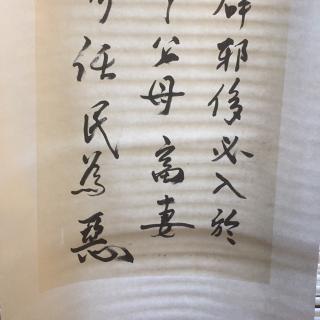 邪侈必入於
父母畜妻
任民為惡